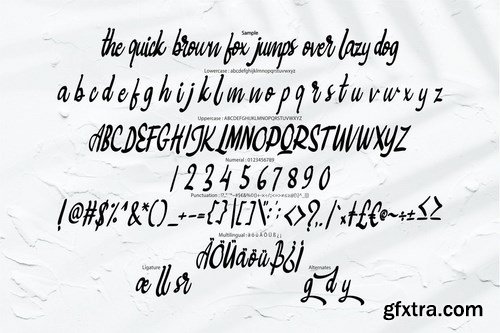 Sample
the quick brown fox jumps over lazy dog
Lowercase : abcdefghijklmnopqrstuvwxyz
a b c d e f g h i j k l m n o p q r s t u v w x y z
Uppercase : ABCDEFGHIJKLMNOPQRSTUVWXYZ
ABCDEFGHIJKLMNOPQRSTUVWXYZ
Numeral : 0123456789
1 2 3 4 5 6 7 8 9 0
Punctuation :
!@#$%^&*()_+-={}|[]\":;<>?,./`×†£€®~÷±≤≥
Multilingual : ä ö ü Ä Ö Ü ß ¿ ¡
ÄÖÜäöü ß¿¡
Ligature
æ ll sr
Alternates
g d y
gfxtra.com